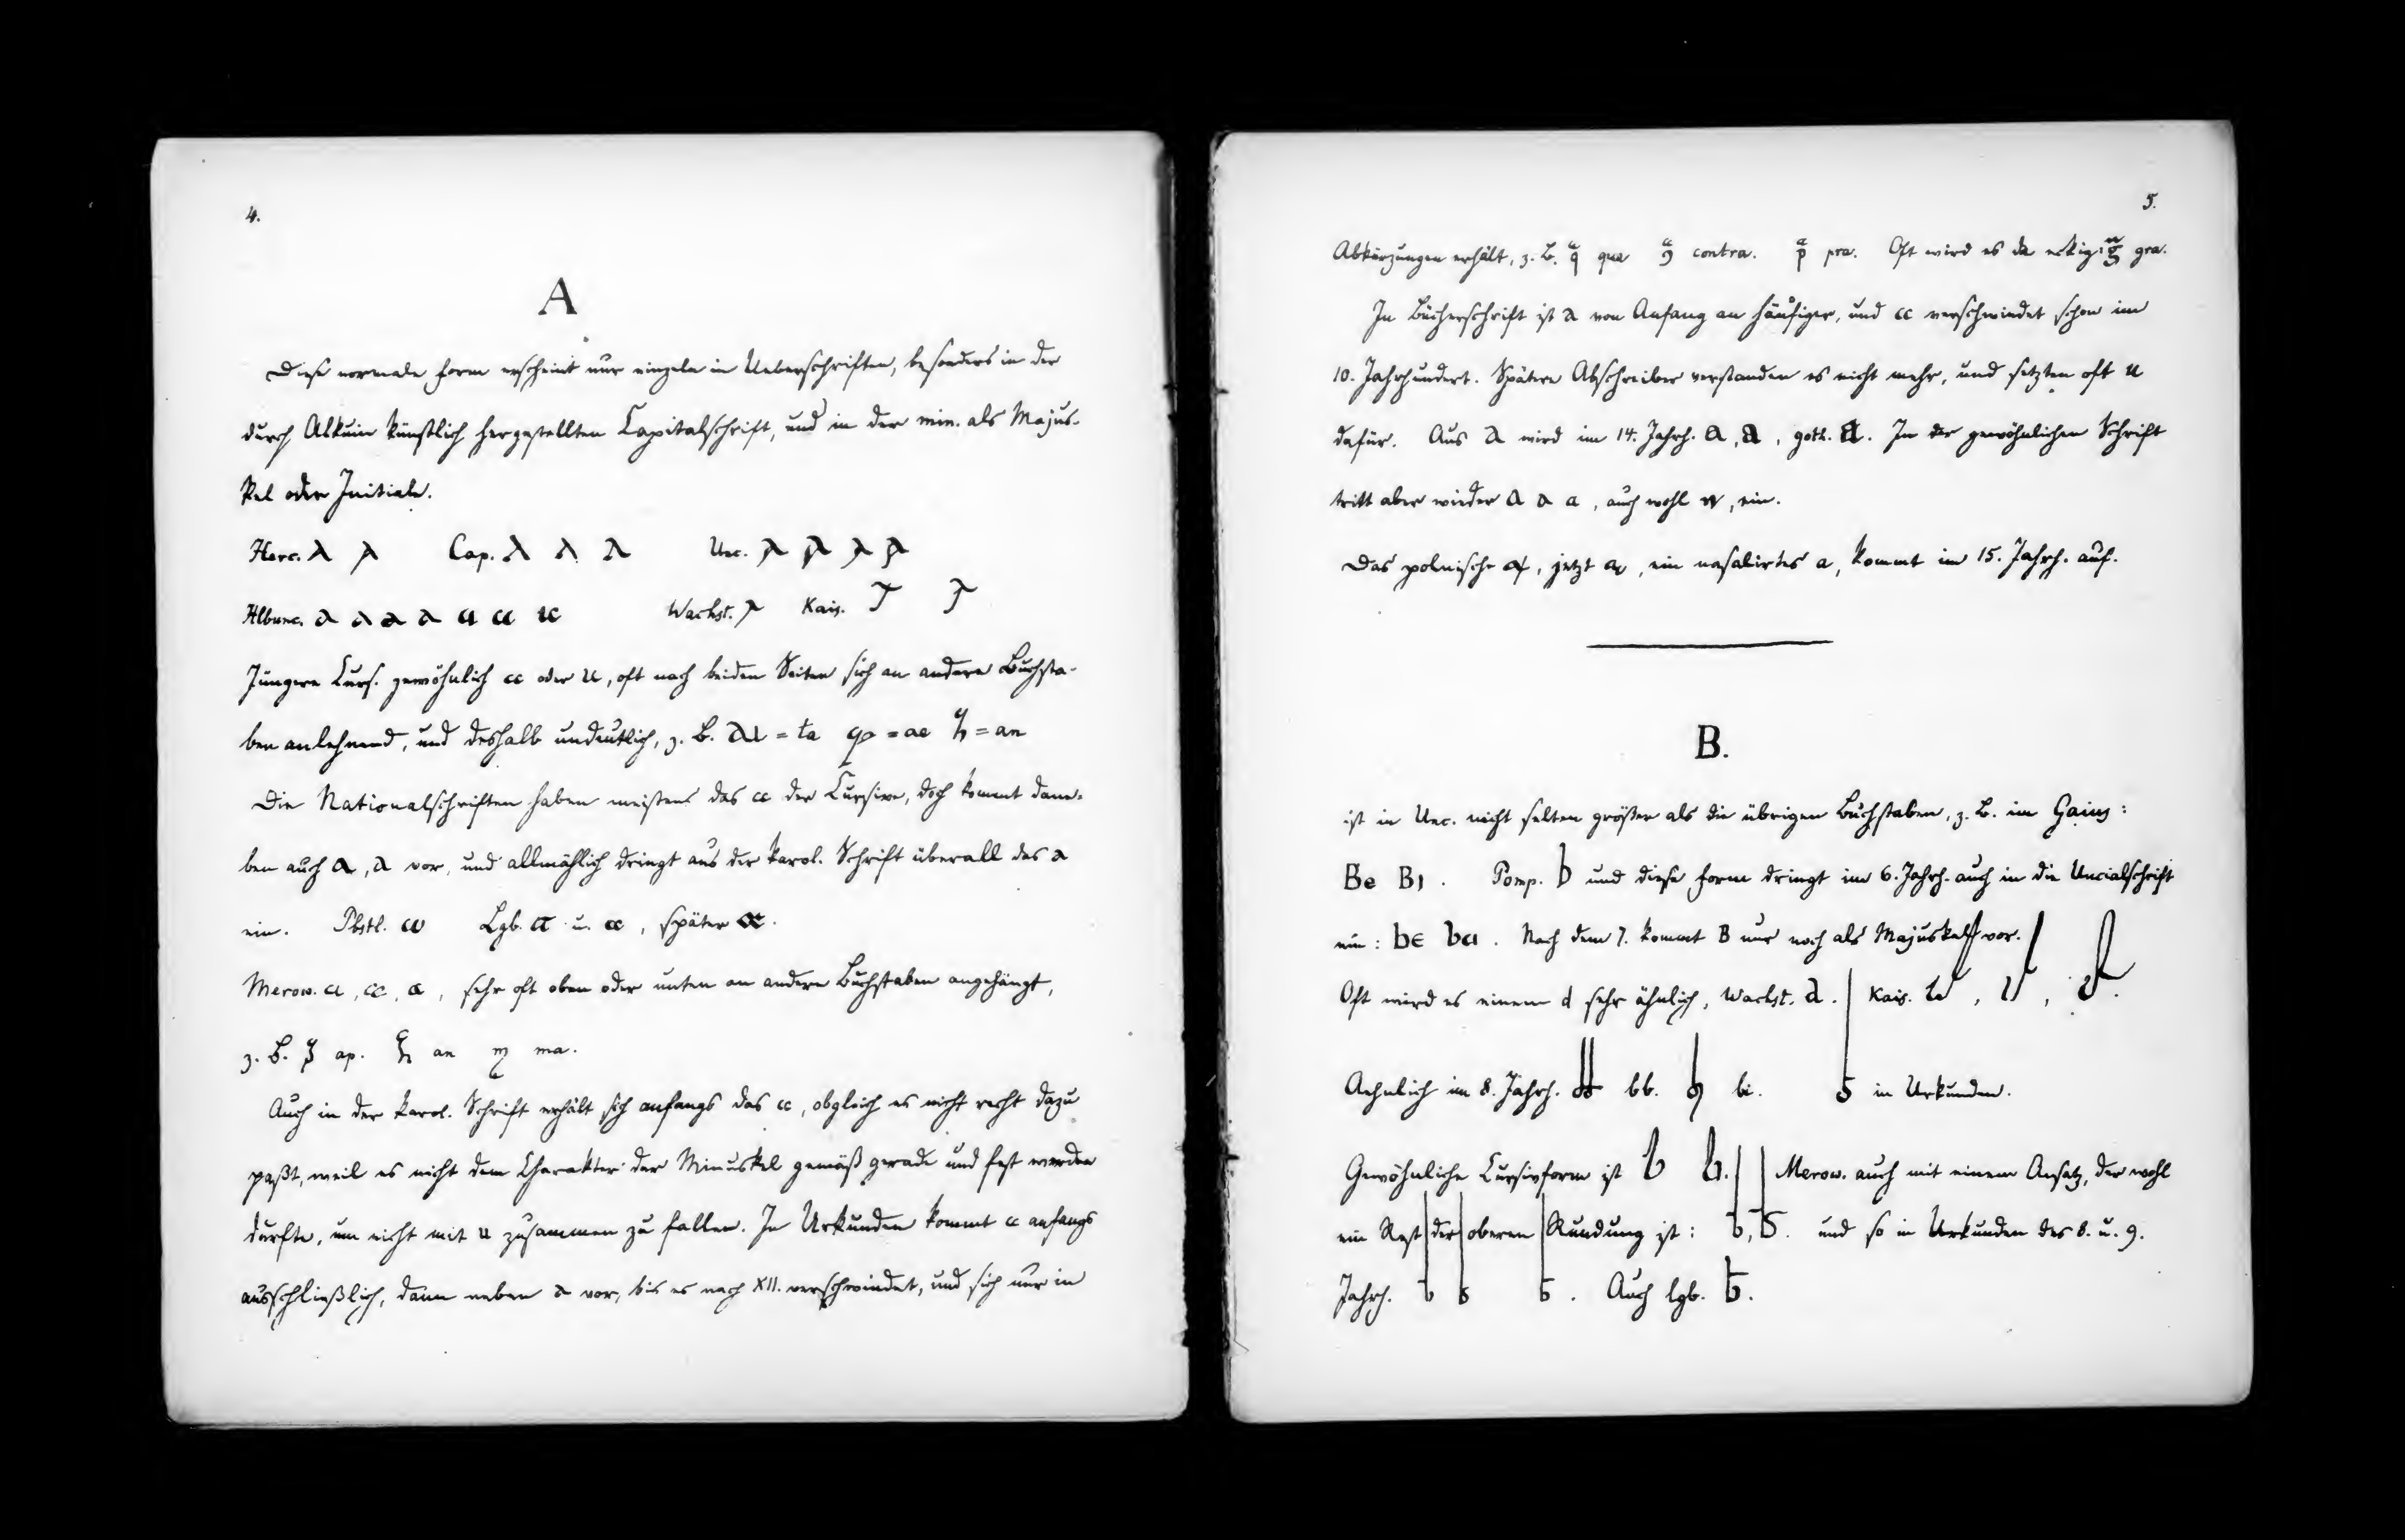 4.
A
Diese normale Form erscheint nur einzeln in Ueberschriften, besonders in der
durch Alkuin künstlich hergestellten Capitalschrift, und in der min. als Majus-
kel oder Initiale.
Herc. λ λ Cap. λ λ λ Unc. λ λ λ λ
Hlbunc. a a a a a a u Wachst. λ Kais.
Jüngere Curs. gewöhnlich cc oder u, oft nach beiden Seiten sich an andere Buchsta-
ben anlehnend, und deshalb undeutlich, z. B. = ta = ae = an
Die Nationalschriften haben meistens das cc der Cursive, doch kommt dane-
ben auch a, a vor, und allmählich dringt aus der karol. Schrift überall das a
ein. Pbstl. ω Lgb. a u. cc, später
Merow. a, cc, a, sehr oft oben oder unten an andere Buchstaben angehängt,
z. B. ap. an ma.
Auch in der karol. Schrift erhält sich anfangs das cc, obgleich es nicht recht dazu
paßt, weil es nicht dem Charakter der Minuskel gemäß gerade und fest werden
durfte, um nicht mit u zusammen zu fallen. In Urkunden kommt cc anfangs
ausschließlich, dann neben a vor, bis es nach XII. verschwindet, und sich nur in
5.
Abkürzungen erhält, z. B. qua contra. pra. Oft wird es da eckig: gra.
In Bücherschrift ist a von Anfang an häufiger, und cc verschwindet schon im
10. Jahrhundert. Spätere Abschreiber verstanden es nicht mehr, und setzten oft u
dafür. Aus a wird im 14. Jahrh. a, a, goth. a. In der gewöhnlichen Schrift
tritt aber wieder a a a, auch wohl, ein.
Das polnische, jetzt ą, ein nasalirtes a, kommt im 15. Jahrh. auf.
B.
ist in Unc. nicht selten größer als die übrigen Buchstaben, z. B. im Gaius:
Be Bi. Pomp. b und diese Form dringt im 6. Jahrh. auch in die Uncialschrift
ein: be ba. Nach dem 7. kommt B nur noch als Majuskel vor.
Oft wird es einem d sehr ähnlich, Wachst. d. Kais.
Aehnlich im 8. Jahrh. bb. bi. b in Urkunden.
Gewöhnliche Cursivform ist b b. Merow. auch mit einem Ansatz, der wohl
ein Rest der oberen Rundung ist: b, b. und so in Urkunden des 8. u. 9.
Jahrh. b b b. Auch lgb. b.